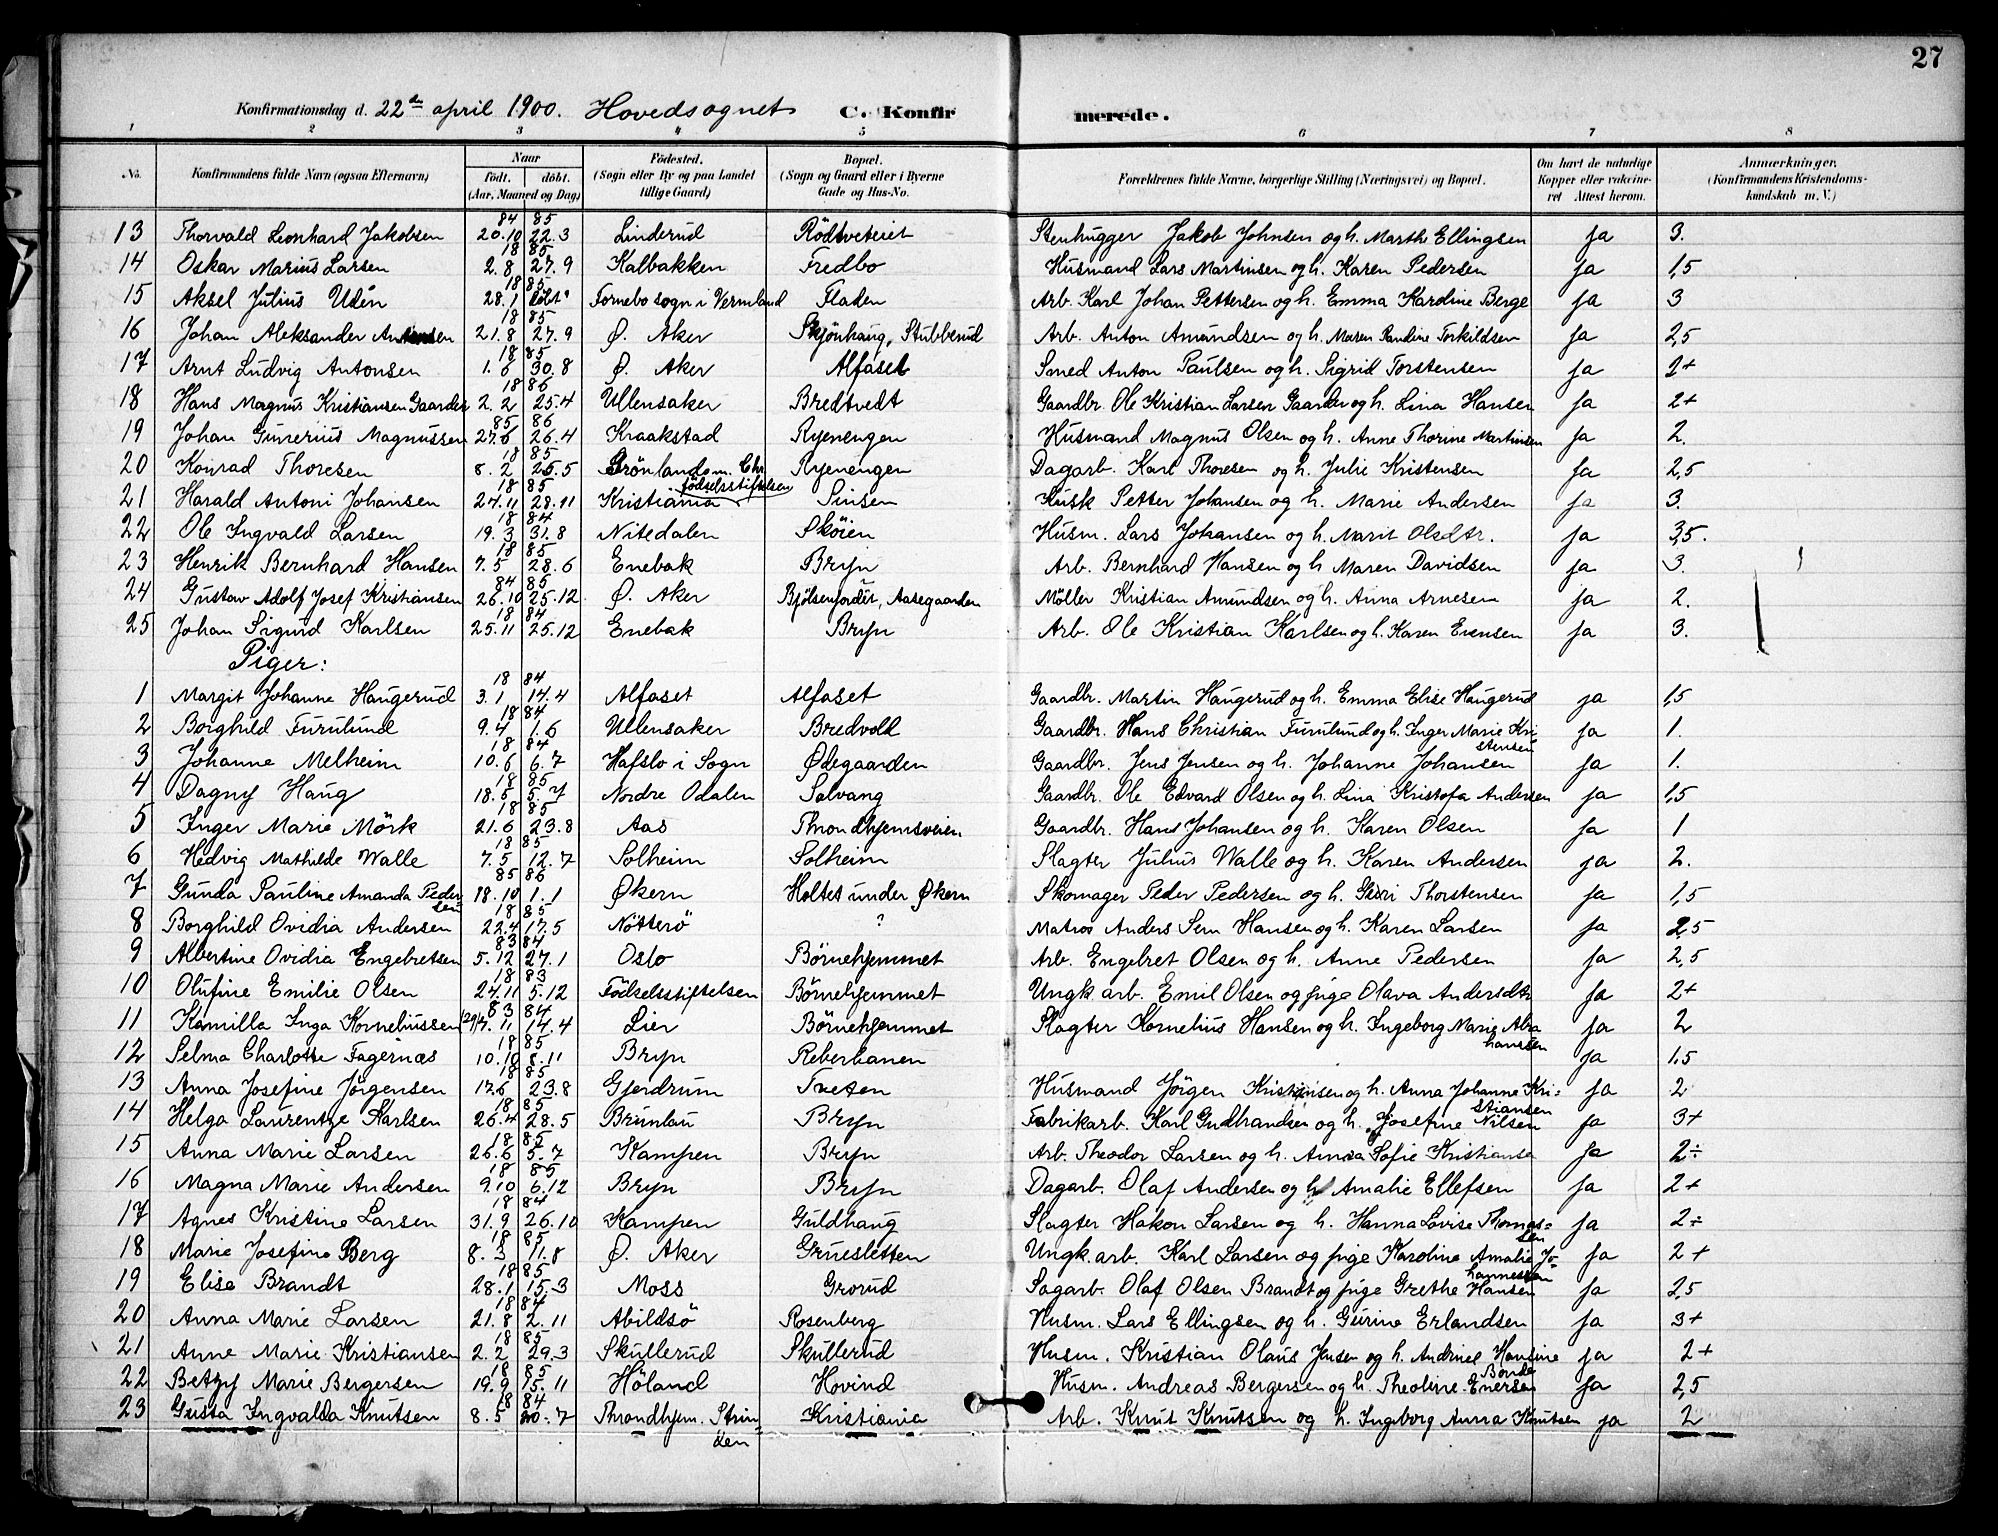 27
Konfirmationsdag d. 22de april 1900. Hovedsognet C. Konfirmerede.
1 2 3 4 5 6 7 8
No. Konfirmandens fulde Navn (ogsaa Efternavn) Naar Født. døbt. (Aar, Maaned og Dag) Fødested. (Sogn eller By og paa Landet tillige Gaard) Bopæl. (Sogn og Gaard eller i Byerne Gade og Hus-No. Forældrenes fulde Navne, borgerlige Stilling (Næringsvei) og Bopæl. Om havt de naturlige Kopper eller vaccineret Attest herom. Anmærkninger. (Konfirmandens Kristendomskundskab m. V.)
13 Thorvald Leonhard Jakobsen 84 20.10 85 22.3 Linderud Rödtveteiet Stenhugger Jakob Johnsen og h. Marthe Ellingsen ja 3.
14 Oskar Marius Larsen 18 2.8 85 27.9 Kalbakken Fredbo Husmand Lars Martinsen og h. Karen Pedersen ja 1,5
15 Aksel Julius Udén 18 28.1 85 Fornebo sogn i Vermland Fladen Arb. Karl Johan Pettersen og h. Emma Karoline Berge ja 3
16 Johan Aleksander 18 21.8 85 27.9 Ø. Aker Skjönhaug, Stubberud Arb. Anton Amundsen og h. Maren Pandine Torkildsen ja 2,5
17 Arnt Ludvig Antonsen 18 1.6 85 30.8 Ø. Aker Alfaset Smed Anton Paulsen og h. Sigrid Torstensen ja 2+
18 Hans Magnus Kristiansen Gaarder 18 2.2 86 25.4 Ullensaker Bredtvedt Gaardbr. Ole Kristian Larsen Gaarder og h. Lina Hansen ja 2+
19 Johan Gunerius Magnussen 85 27.6 86 26.4 Kraakstad Ryenengen Husmand Magnus Olsen og h. Anne Thorine Martinsen ja 2.
20 Konrad Thoresen 18 8.2 85 25.5 Grönland om. Chr. Ryenengen Dagarb. Karl Thoresen og h. Julie Kristensen ja 2,5
21 Harald Antoni Johansen 18 24.11 85 28.11 Kristiania födselsstiftelsen Sinsen Kusk Petter Johansen og h. Marie Andersen ja 3.
22 Ole Ingvald Larsen 18 19.3 84 31.8 Nitedalen Sköien Husm. Lars Johansen og h. Marit Olsdtr. ja 3,5.
23 Henrik Bernhard Hansen 18 7.5 85 28.6 Enebak Bryn Arb. Bernhard Hansen og h Maren Davidsen ja 3.
24 Gustav Adolf Josef Kristiansen 84 26.10 85 25.12 Ø. Aker Bjölsenjordet, Aasegaarden Möller Kristian Amundsen og h. Anna Arnesen ja 2.
25 Johan Sigurd Karlsen 18 25.11 84 25.12 Enebak Bryn Arb. Ole Kristian Karlsen og h. Karen Evensen ja 3.
Piger:
1 Margit Johanne Haugerud 18 3.1 84 14.4 Alfaset Alfaset Gaardbr. Martin Haugerud og h. Emma Elise Haugerud ja 1,5
2 Borghild Furulund 18 9.4 84 1.6 Ullensaker Bredvold Gaardbr. Hans Christian Furulund og h. Inger Marie Kristensen ja 1.
3 Johanne Melheim 18 10.6 84 6.7 Hafslo i Sogn Ødegaarden Gaardbr. Jens Jensen og h. Johanne Johansen ja 1.
4 Dagny Haug 18 18.5 85 5.7 Nordre Odalen Solvang Gaardbr. Ole Edvard Olsen og h. Lina Kristofa Andersen ja 1,5
5 Inger Marie Mörk 18 21.6 85 23.8 Aas Throndhjemsveien Gaardbr. Hans Johansen og h. Karen Olsen ja 1
6 Hedvig Mathilde Walle 18 7.5 85 12.7 Solheim Solheim Slagter Julius Walle og h. Karen Andersen ja 2.
7 Gunda Pauline Amanda Pedersen 85 18.10 86 1.1 Økern Holtet under Økern Skomager Peder Pedersen og h. Thorstensen ja 1,5
8 Borghild Ovidia Andersen 18 22.4 85 17.5 Nötterö ? Matros Anders Sem Hansen og h. Karen Larsen ja 2,5
9 Albertine Ovidia Engebretsen 83 5.12 84 27.1 Oslo Börnehjemmet Arb. Engebret Olsen og h. Anne Pedersen ja 2,5
10 Olufine Emilie Olsen 18 24.11 83 5.12 Födselsstiftelsen Börnehjemmet Ungk arb. Emil Olsen og pige Olava Andersdtr ja 2+
11 Kamilla Inga Korneliussen 83 7.11 84 14.4 Lier Börnehjemmet Slagter Kornelius Hansen og h. Ingeborg Marie Abrahamsen ja 2
12 Selma Charlotte Fagernæs 18 10.10 85 8.11 Bryn Reberbanen ja 1.5
13 Anna Josefine Jörgensen 18 17.6 85 23.8 Gjerdrum Tveten Husmand Jörgen Kristiansen og h. Anna Johanne Kristiansen ja 2
14 Helga Laurentze Karlsen 18 26.4 85 28.5 Brunlau Bryn Fabrikarb. Karl Gudbrandsen og h. Josefine Nilsen ja 3+
15 Anna Marie Larsen 18 26.6 85 5.7 Kampen Bryn Arb. Theodor Larsen og h. Anna Sofie Kristianse ja 2÷
16 Magna Marie Andersen 18 9.10 85 6.12 Bryn Bryn Dagarb. Olaf Andersen og h Amalie Ellefsen ja 2+
17 Agnes Kristine Larsen 18 31.9 84 26.10 Kampen Guldhaug Slagter Hakon Larsen og h. Hanna Lovise Thomassen ja 2÷
18 Marie Josefine Berg 18 8.3 85 11.8 Ø. Aker Gruesletten Ungk. arb. Karl Larsen og pige Karoline Amalie Johannessen ja 2+
19 Elise Brandt 18 28.1 85 15.3 Moss Grorud Sagarb. Olaf Olsen Brandt og pige Grethe Hansen ja 2,5
20 Anna Marie Larsen 18 21.8 84 2.11 Abildsö Rosenberg Husm. Lars Ellingsen og h. Gurine Erlandsen ja 3+
21 Anne Marie Kristiansen 18 2.2 85 29.3 Skullerud Skullerud Husm. Kristian Olaus Jensen og h. Andrine Hansine Bonde ja 2+
22 Betzy Marie Bergersen 18 19.9 85 15.11 Höland Hovind Husm. Andreas Bergersen og h. Theoline Enersen ja 2,5
23 Gusta Ingvalda Knutsen 18 8.5 84 20.7 Throndhjem. Strinden Kristiania Arb. Knut Knutsen og h. Ingeborg Anna Knutsen ja 2